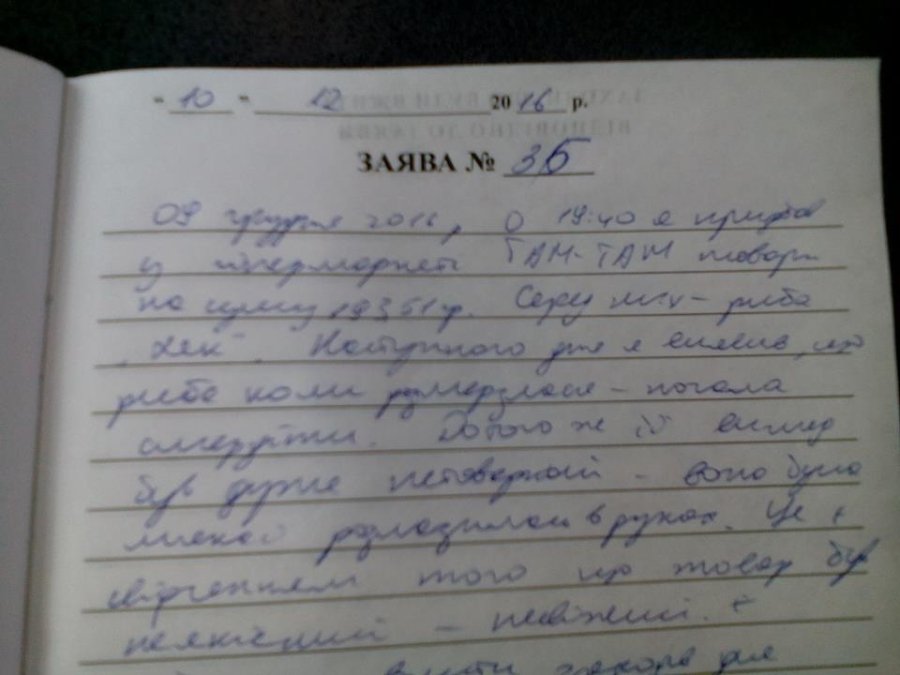 " 10 " 12 2016 р.
ЗАЯВА № 35
09 грудня 2016, о 19:40 я придбав
у гіпермаркеті ТАМ-ТАМ товари
на суму 193 51 гр. Серед них - риба
"Хек". Наступного дня я виявив, що
риба коли розмерзлася - почала
смердіти. До того ж її вигляд
був дуже нетоварний - вона була
розлазилась в руках. Це є
свідченням того що товар був
неякісний - несвіжий. є
вжити заходів для